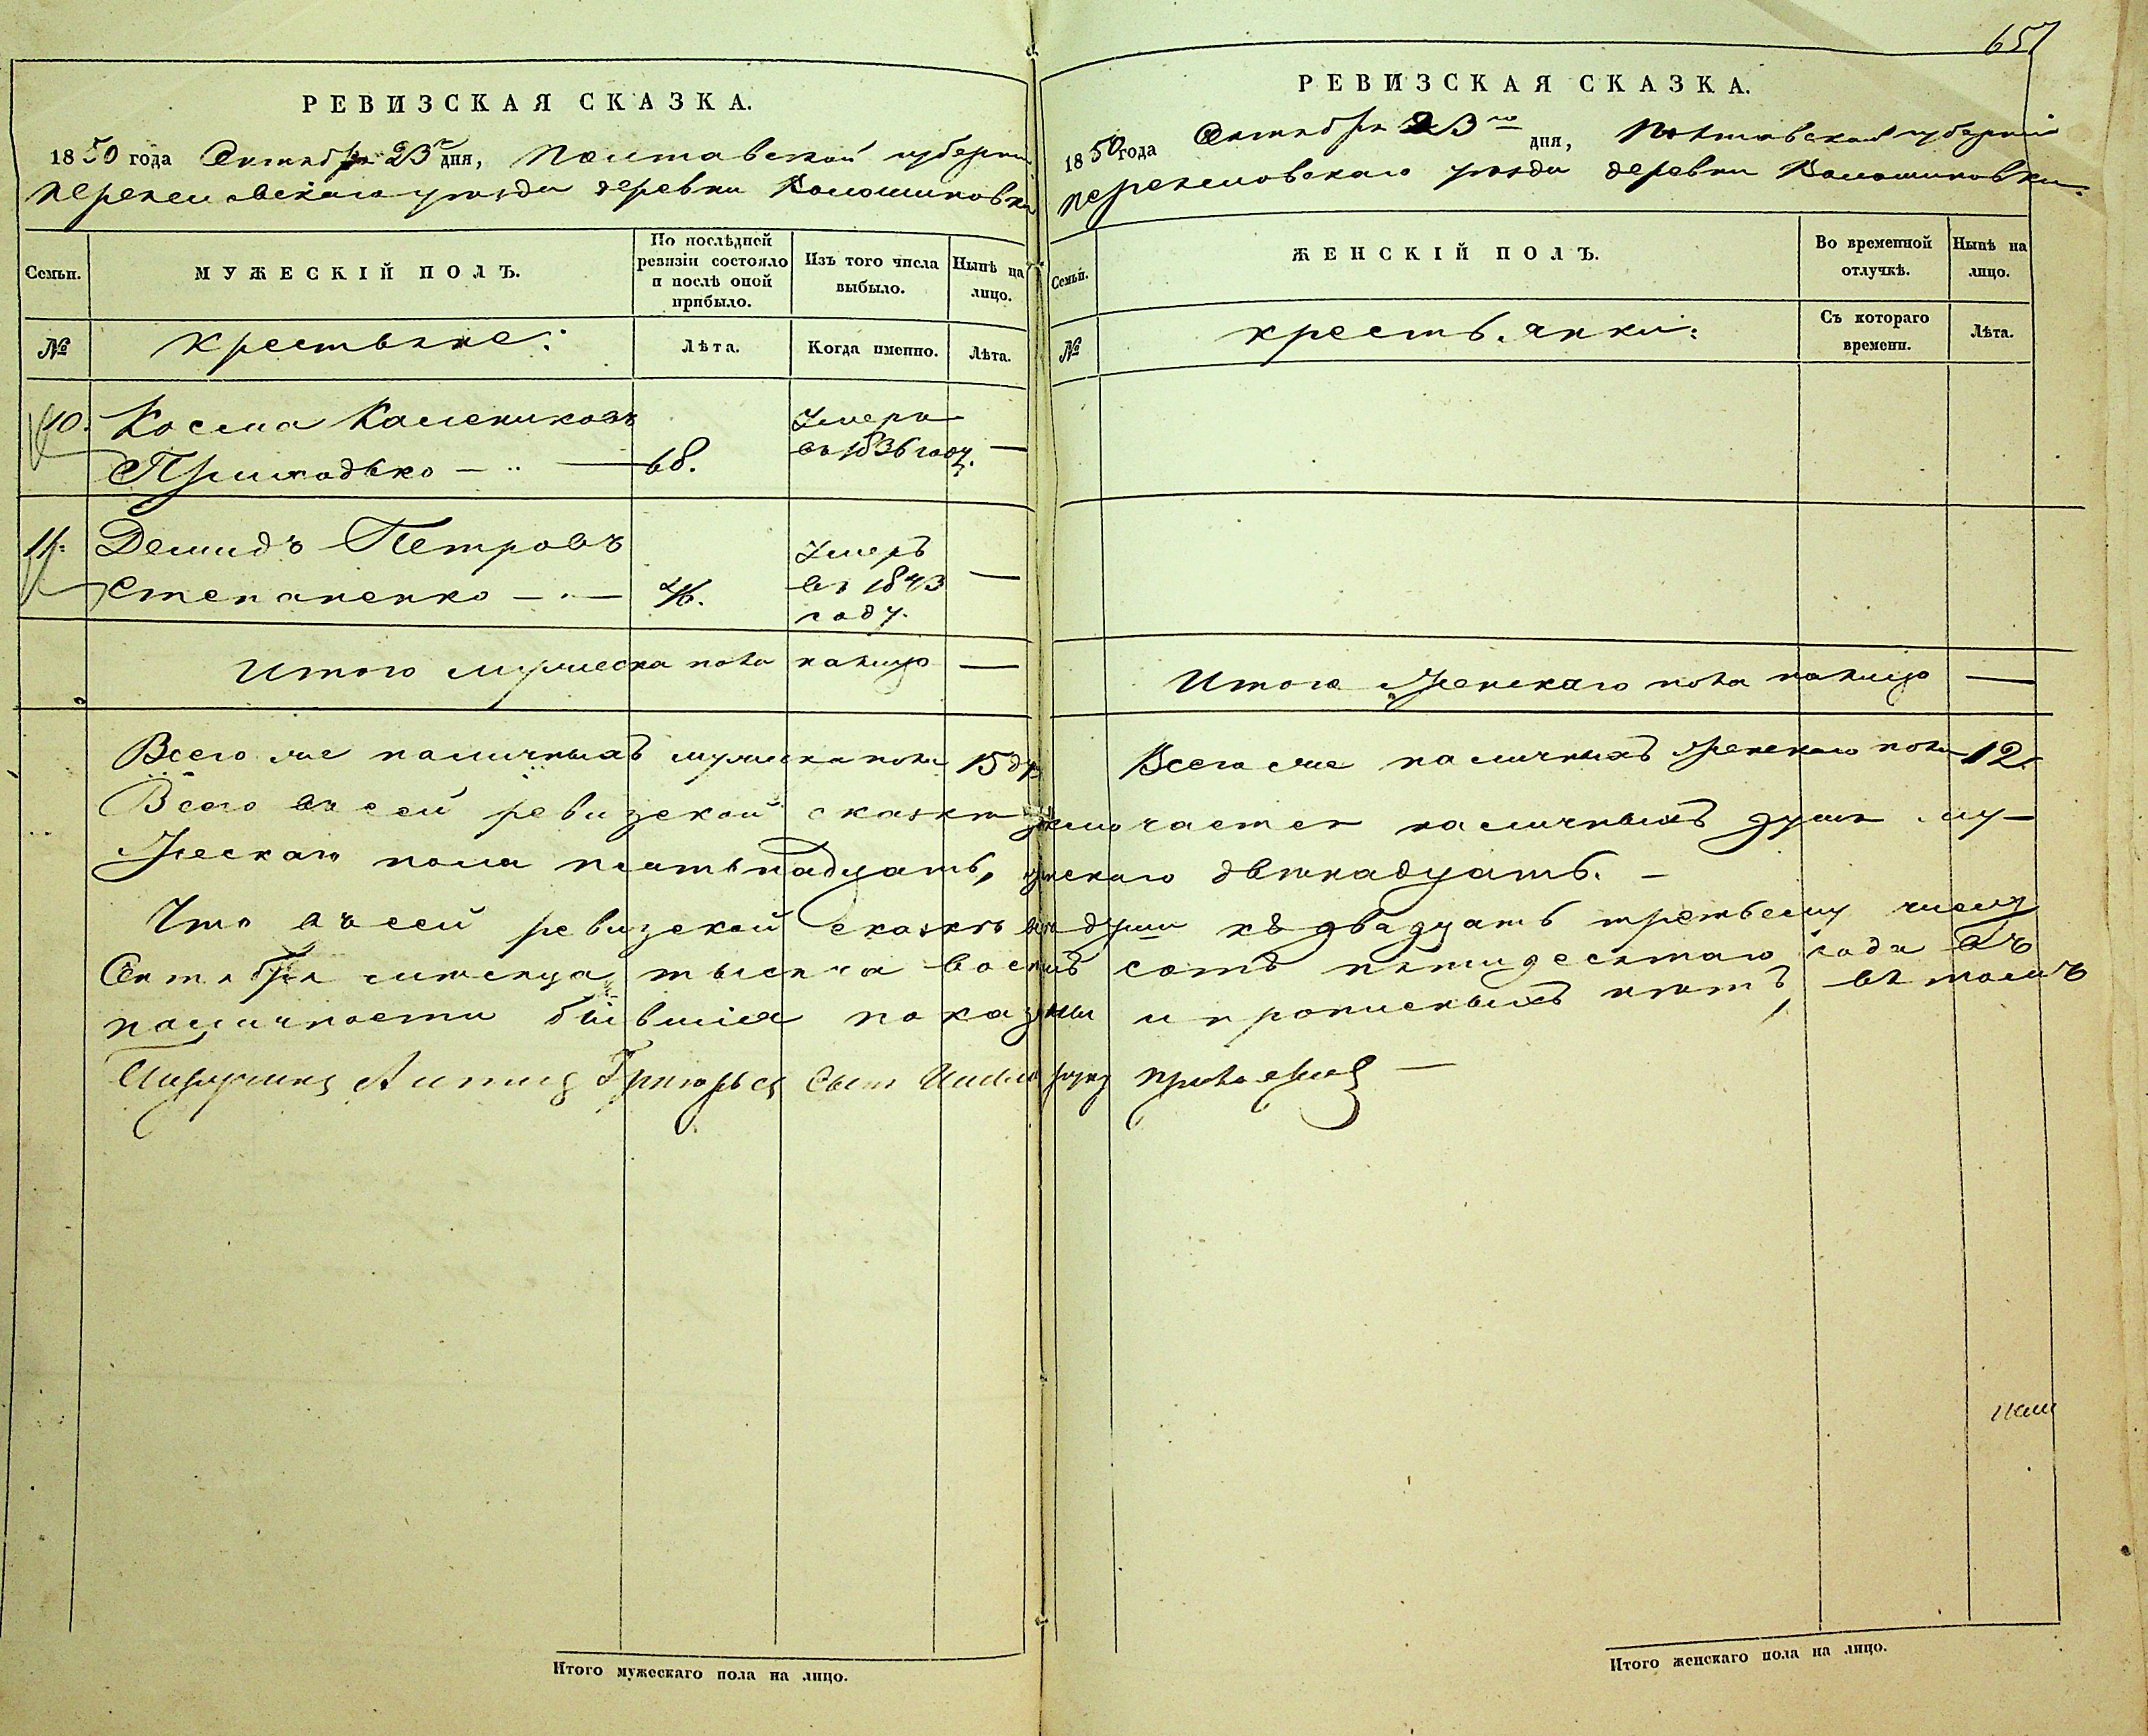 657
РЕВИЗСКАЯ СКАЗКА.
1850 года Октября 23го дня, Полтавской губернии
уезда деревни
Семьи.
МУЖЕСКІЙ ПОЛЪ.
По послѣдней ревизіи состояло и послѣ оной прибыло.
Изъ того числа выбыло.
Нынѣ на лицо.
№
крестьяне:
Лѣта.
Когда именно.
Лѣта.
10. Косма Калениковъ Умеръ
Приходько — 68. въ 1836 году. —
11. Демидъ Петровъ Умеръ
Степаненко — въ 1843 —
году.
Итого мужеска пола налицо —
РЕВИЗСКАЯ СКАЗКА.
1850 года Октября 23го дня, Полтавской губерніи
уезда деревни
Семьи.
ЖЕНСКІЙ ПОЛЪ.
Во временной отлучкѣ.
Нынѣ на лицо.
№
крестьянки:
Съ котораго времени.
Лѣта.
Итого Женскаго пола налицо —
Всего же наличныхъ мужеска пола 15 ду.
Всего же наличныхъ женскаго пола 12.
Всего въ сей ревизской сказкѣ заключается наличныхъ душъ му-
жескаго пола пятьнадцать, женскаго двѣнадцать. —
Что въ сей ревизской сказкѣ всѣ души къ двадцать третьему числу
Октября мѣсяца тысяча восемь сотъ пятидесятаго года въ
наличности бывшія показаны и прописныхъ нѣтъ, въ томъ
Григорьев Сынъ руку приложилъ —
Итого мужескаго пола на лицо.
Итого женскаго пола на лицо.